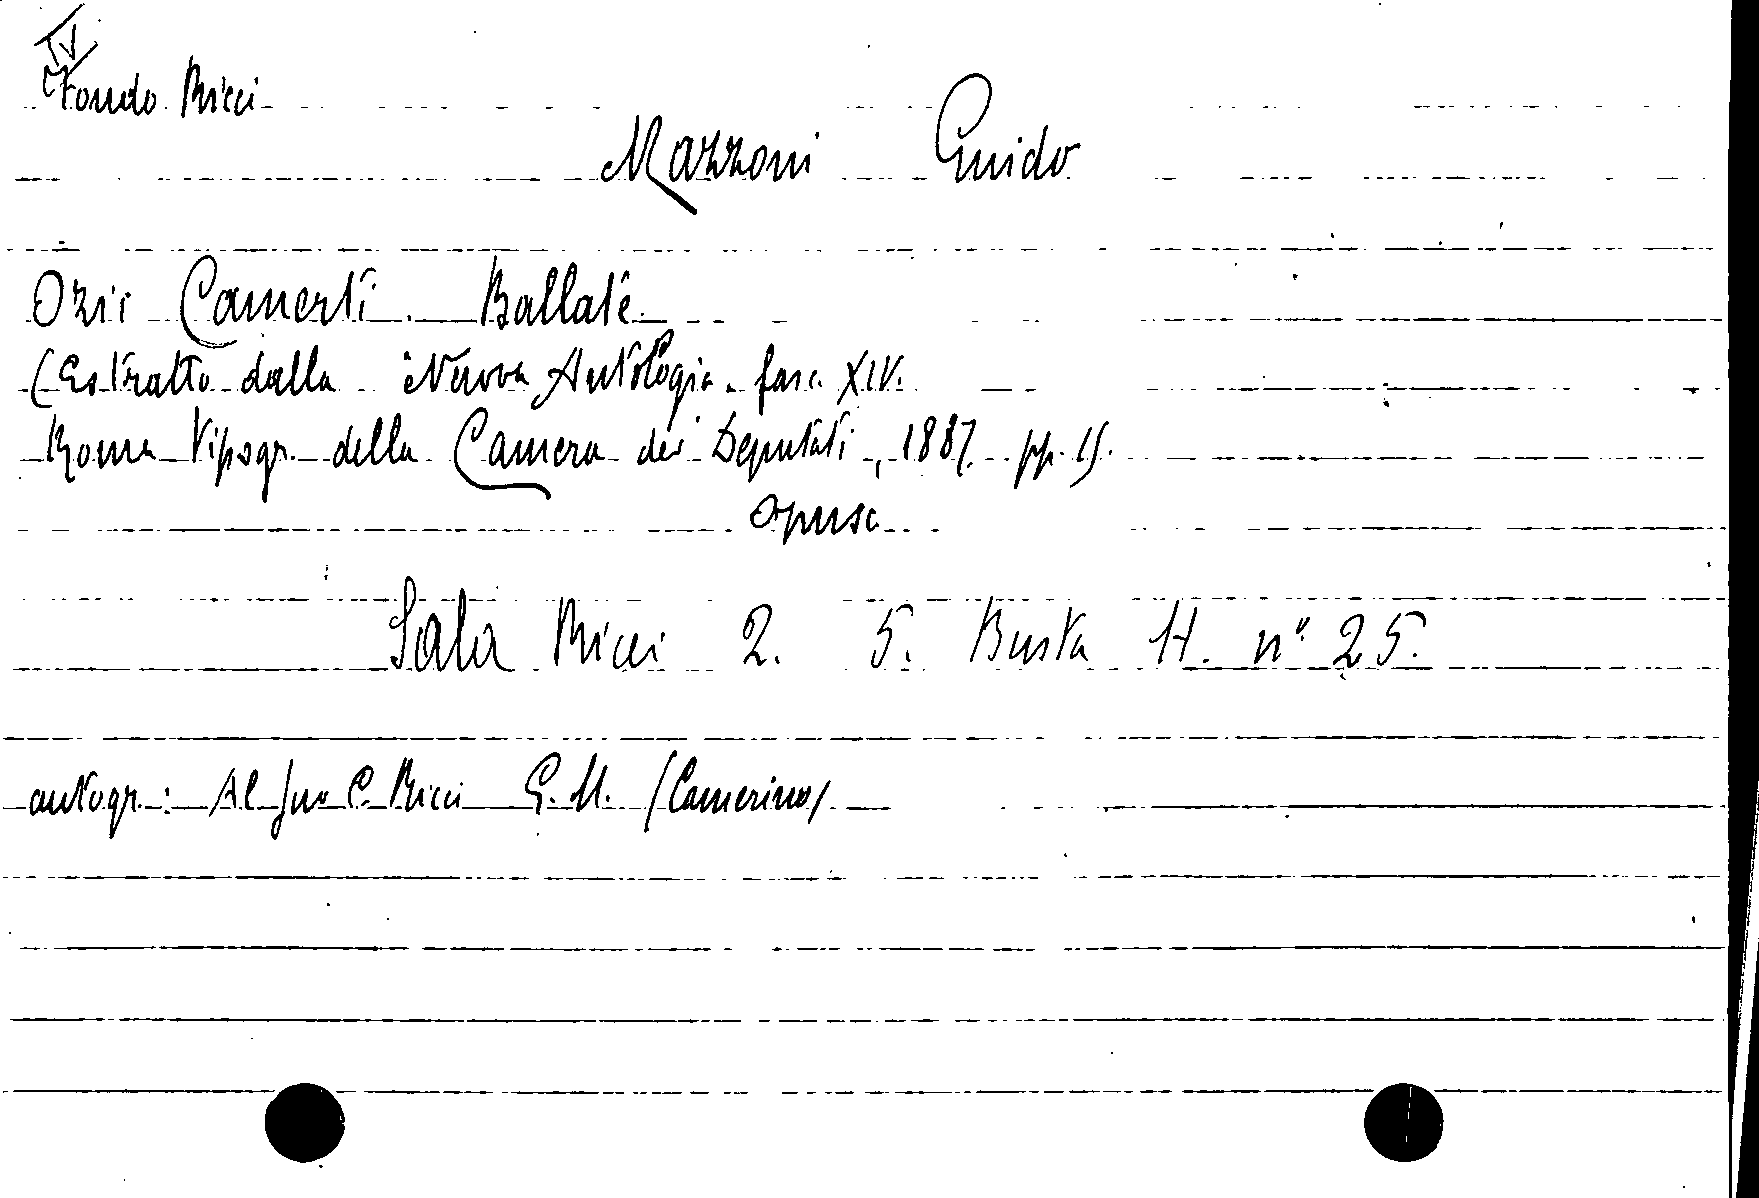 IV
Fondo Ricci
Mazzoni Guido
Ozii Camerti. Ballate
(Estratto dalla Nuova Antologia. fasc. XIV.
Roma Tipogr. della Camera dei Deputati, 1887. pp. 15.
opusc.
Sala Ricci 2. 5. Busta H. n° 25.
autogr.: Al suo C. Ricci G. M. (Camerino)